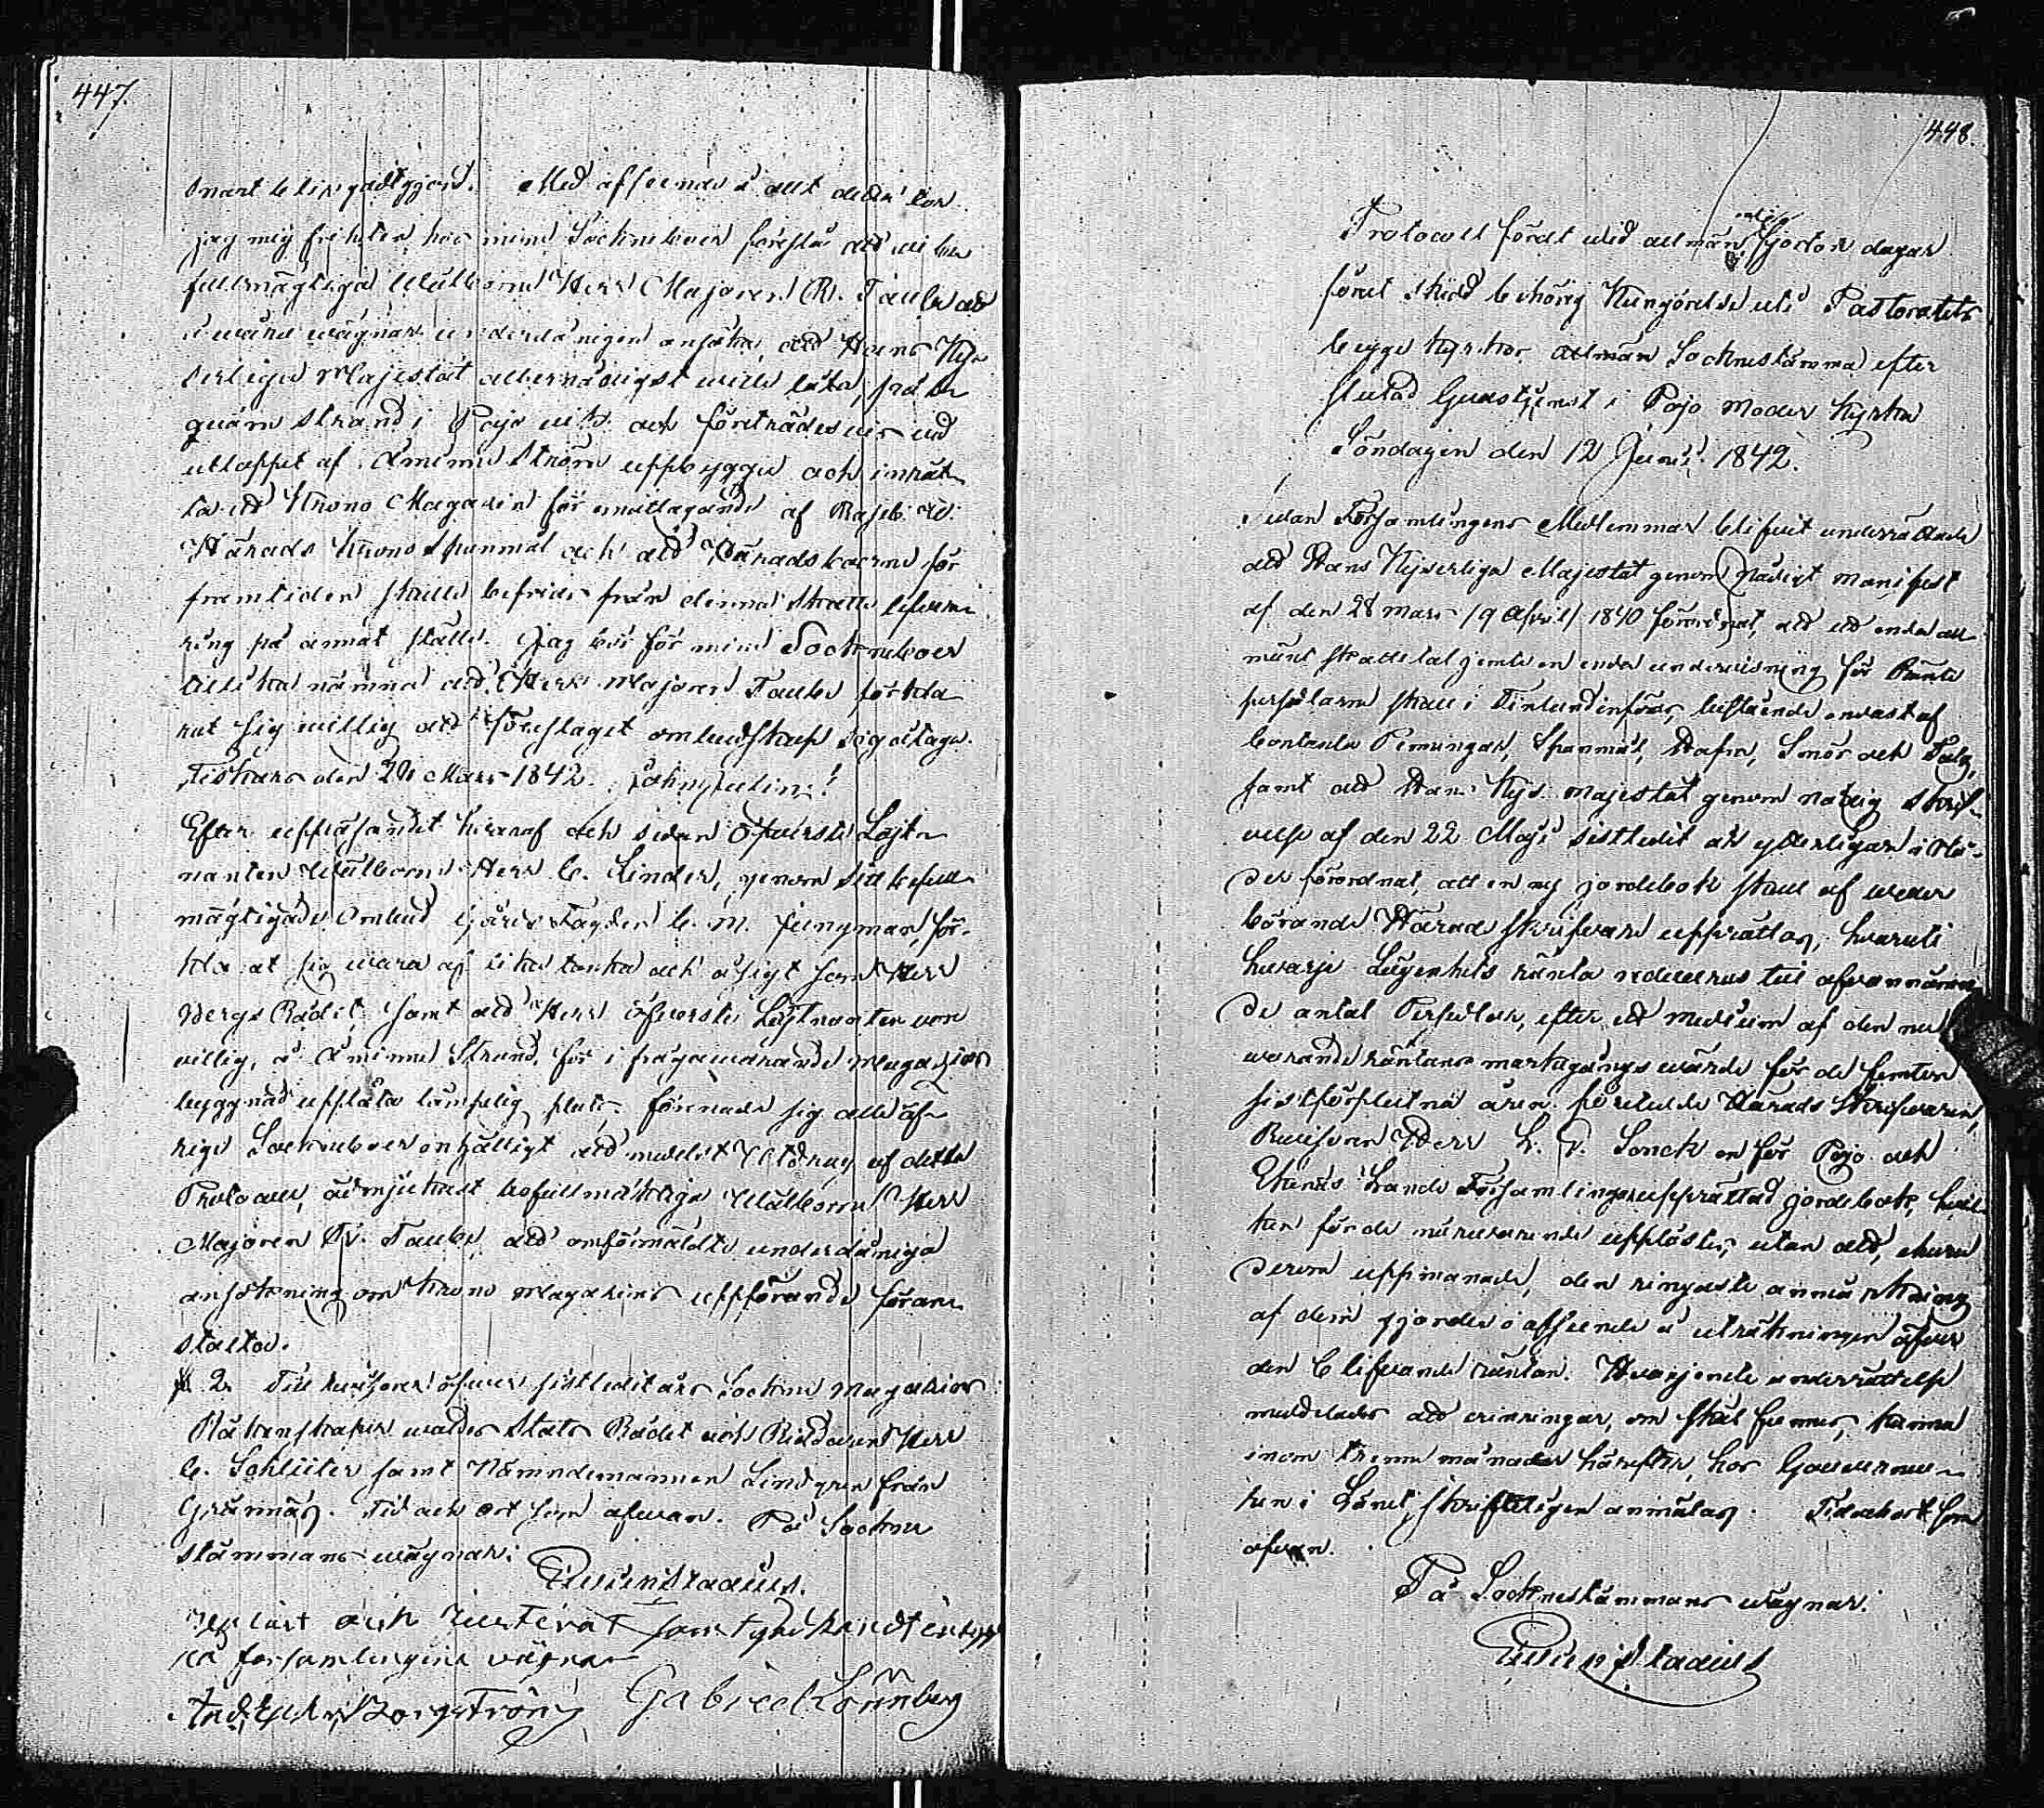 447.
snart blir gjord. Med afseende å allt detta tor
jag mig friheten hos mine Sockneboer föreslå att vi be
fullmägtiga Wälborne Herr Majoren R. Taube att
i våra vägnar underdånigen ansöka, att Hans Kej
serliga Majestät allernådigst wille låta, på be
quäm strand i Pojo vik och företrädesvis vid
utloppet af Åminne Ström uppbygga och inrät
ta ett Krono Magasin för emottagande af Raseb. W.
Härads Krono Spanmål och att Häradsboerne för
framtiden skulle befrias från denna skatte lefvere
ring på annat ställe. Jag bör för mine Sockneboer
tillika nämna att Herr Majoren Taube förkla
rat sig willig att föreslaget ombudskap sig åtaga.
Fiskars den 20 Mars 1842. John Julin.
Efter uppläsandet häraf och sedan Öfverste Löjt
nanten Wälborne Herr C. Linder, genom sitt befull
mägtigade Ombud Gårds Fogden C. M. Ljungman, för
kla at sig wara af lika tanka och åsigt som Herr
Bergs Rådet, samt att Herr Öfverste Löjtnanten vore
villig, å Åminne Strand, för i frågawarande Magazins
byggnad upplåta lämpelig plats, förenade sig alla öf
rige Sockneboer enhälligt att medelst Utdrag af detta
Protocoll, ödmjukast befullmäktiga Wälborne Herr
Majoren R. Taube, att omförmälde underdåniga
ansökning om Krono Magasins uppförande föran
stalta.
§ 2. Till revisorer öfver sistledit års Sockne Magasins
Räkenskaper valdes Stats Rådet och Riddaren Herr
C. Schlüter samt Nämndemannen Lindgren från
Grännäs. Tid och ort som ofvan. På Sockne
stämmans wägnar:
Stadius.
Upläst och Justerat samtyckes
på församlingens vägnar
Borgström Gabriel Lönnberg
448.
Protocoll fördt wid allmän fjorton dagar
förut skedd behörig Kungörelse uti Pastoratets
begge Kyrkor allmän Socknestämma efter
slutad Gudstjenst i Pojo Moder Kyrka
Söndagen den 12 Junii 1842.
Sedan Församlingens Medlemmar blifvit underrättade
att Hans Kejserliga Majestät genom Nådigt Manifest
af den 28 Mars /9 April/ 1840 förordnat, att ett enda all
mänt skattetal jemte en enda undervisning för Ränte
persedlarne skall i Finland införas, bestående endast af
contanta Penningar, Spanmål, Hafra, Smör och Talg,
samt att Hans Kejs. Majestät genom nådig Skrif
velse af den 22 Maji sistledit år ytterligare i Nå
der förordnat, att en ny jordebok skall af weder
börande Häradsskrifvare upprättas, hvaruti
hvarje Lägenhets ränta reduceras till ofvannämn
de antal Persedlar, efter ett medium af den nu
warande räntans markegångs wärde för de femton
sistförflutna åren, förelade Härads Skrifvaren,
Revisoren Herr L. V. Sonck en för Pojo och
Ekenäs Lands Församlingar upprättad jordebok, hvil
ken för de närvarande upplästes, utan att, ehuru
derom uppmanade, den ringaste anmärkning
af dem gjordes i afseende å uträkningen öfver
den blifvande räntan. Hvarjemte underrättelse
meddelades att erinringar, om skäl funnes, kunna
inom trenne månader härefter, hos Gouverneu
ren i Länet, skrifteligen anmälas. Tid och ort som
ofvan.
På Socknestämmans wägnar:
Stadius